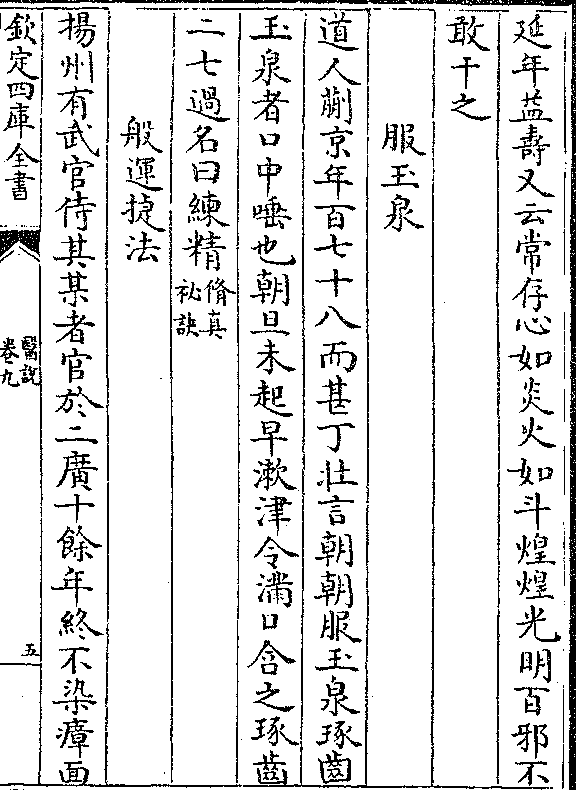 延年益壽又云常存心如炎火如斗煌煌光明百邪不
敢干之
服玉泉
道人蒯京年百七十八而甚丁壯言朝朝服玉泉琢齒
玉泉者口中唾也朝旦未起早漱津令滿口含之琢齒
二七過名曰練精脩真祕訣
般運捷法
揚州有武官侍其某者官於二廣十餘年終不染瘴面
欽定四庫全書
醫說
卷九
五